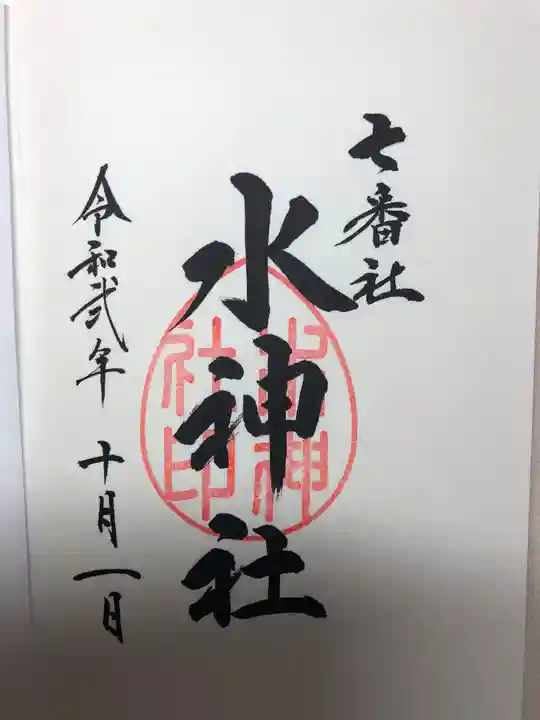 七番社
水神社
水神
社印
令和弐年 十月一日